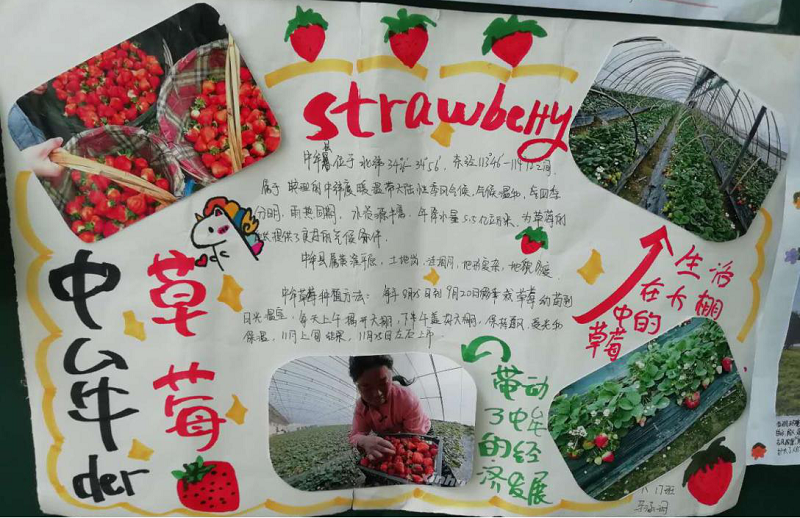 strawberry
中牟县位于北纬34°6′—34°56′,东经113°46′—114°12′之间,
属于典型的中纬度暖温带大陆性季风气候,气候温和,与四季
分明,雨热同期。水资源丰富,年降水量5.5亿立方米,为草莓的
提供了良好的气候条件。
中牟县属黄淮平原,土地岗、洼
中牟草莓种植方法:每年8月25日到9月20日
日光温室,每天上午揭开大棚,下午盖农大棚,保持通风、受光和
保温,11月上旬结果,11月25日左右上市
中牟
der
草莓
生活
在大棚
中的
草莓
带动
了中牟
的经
济发展